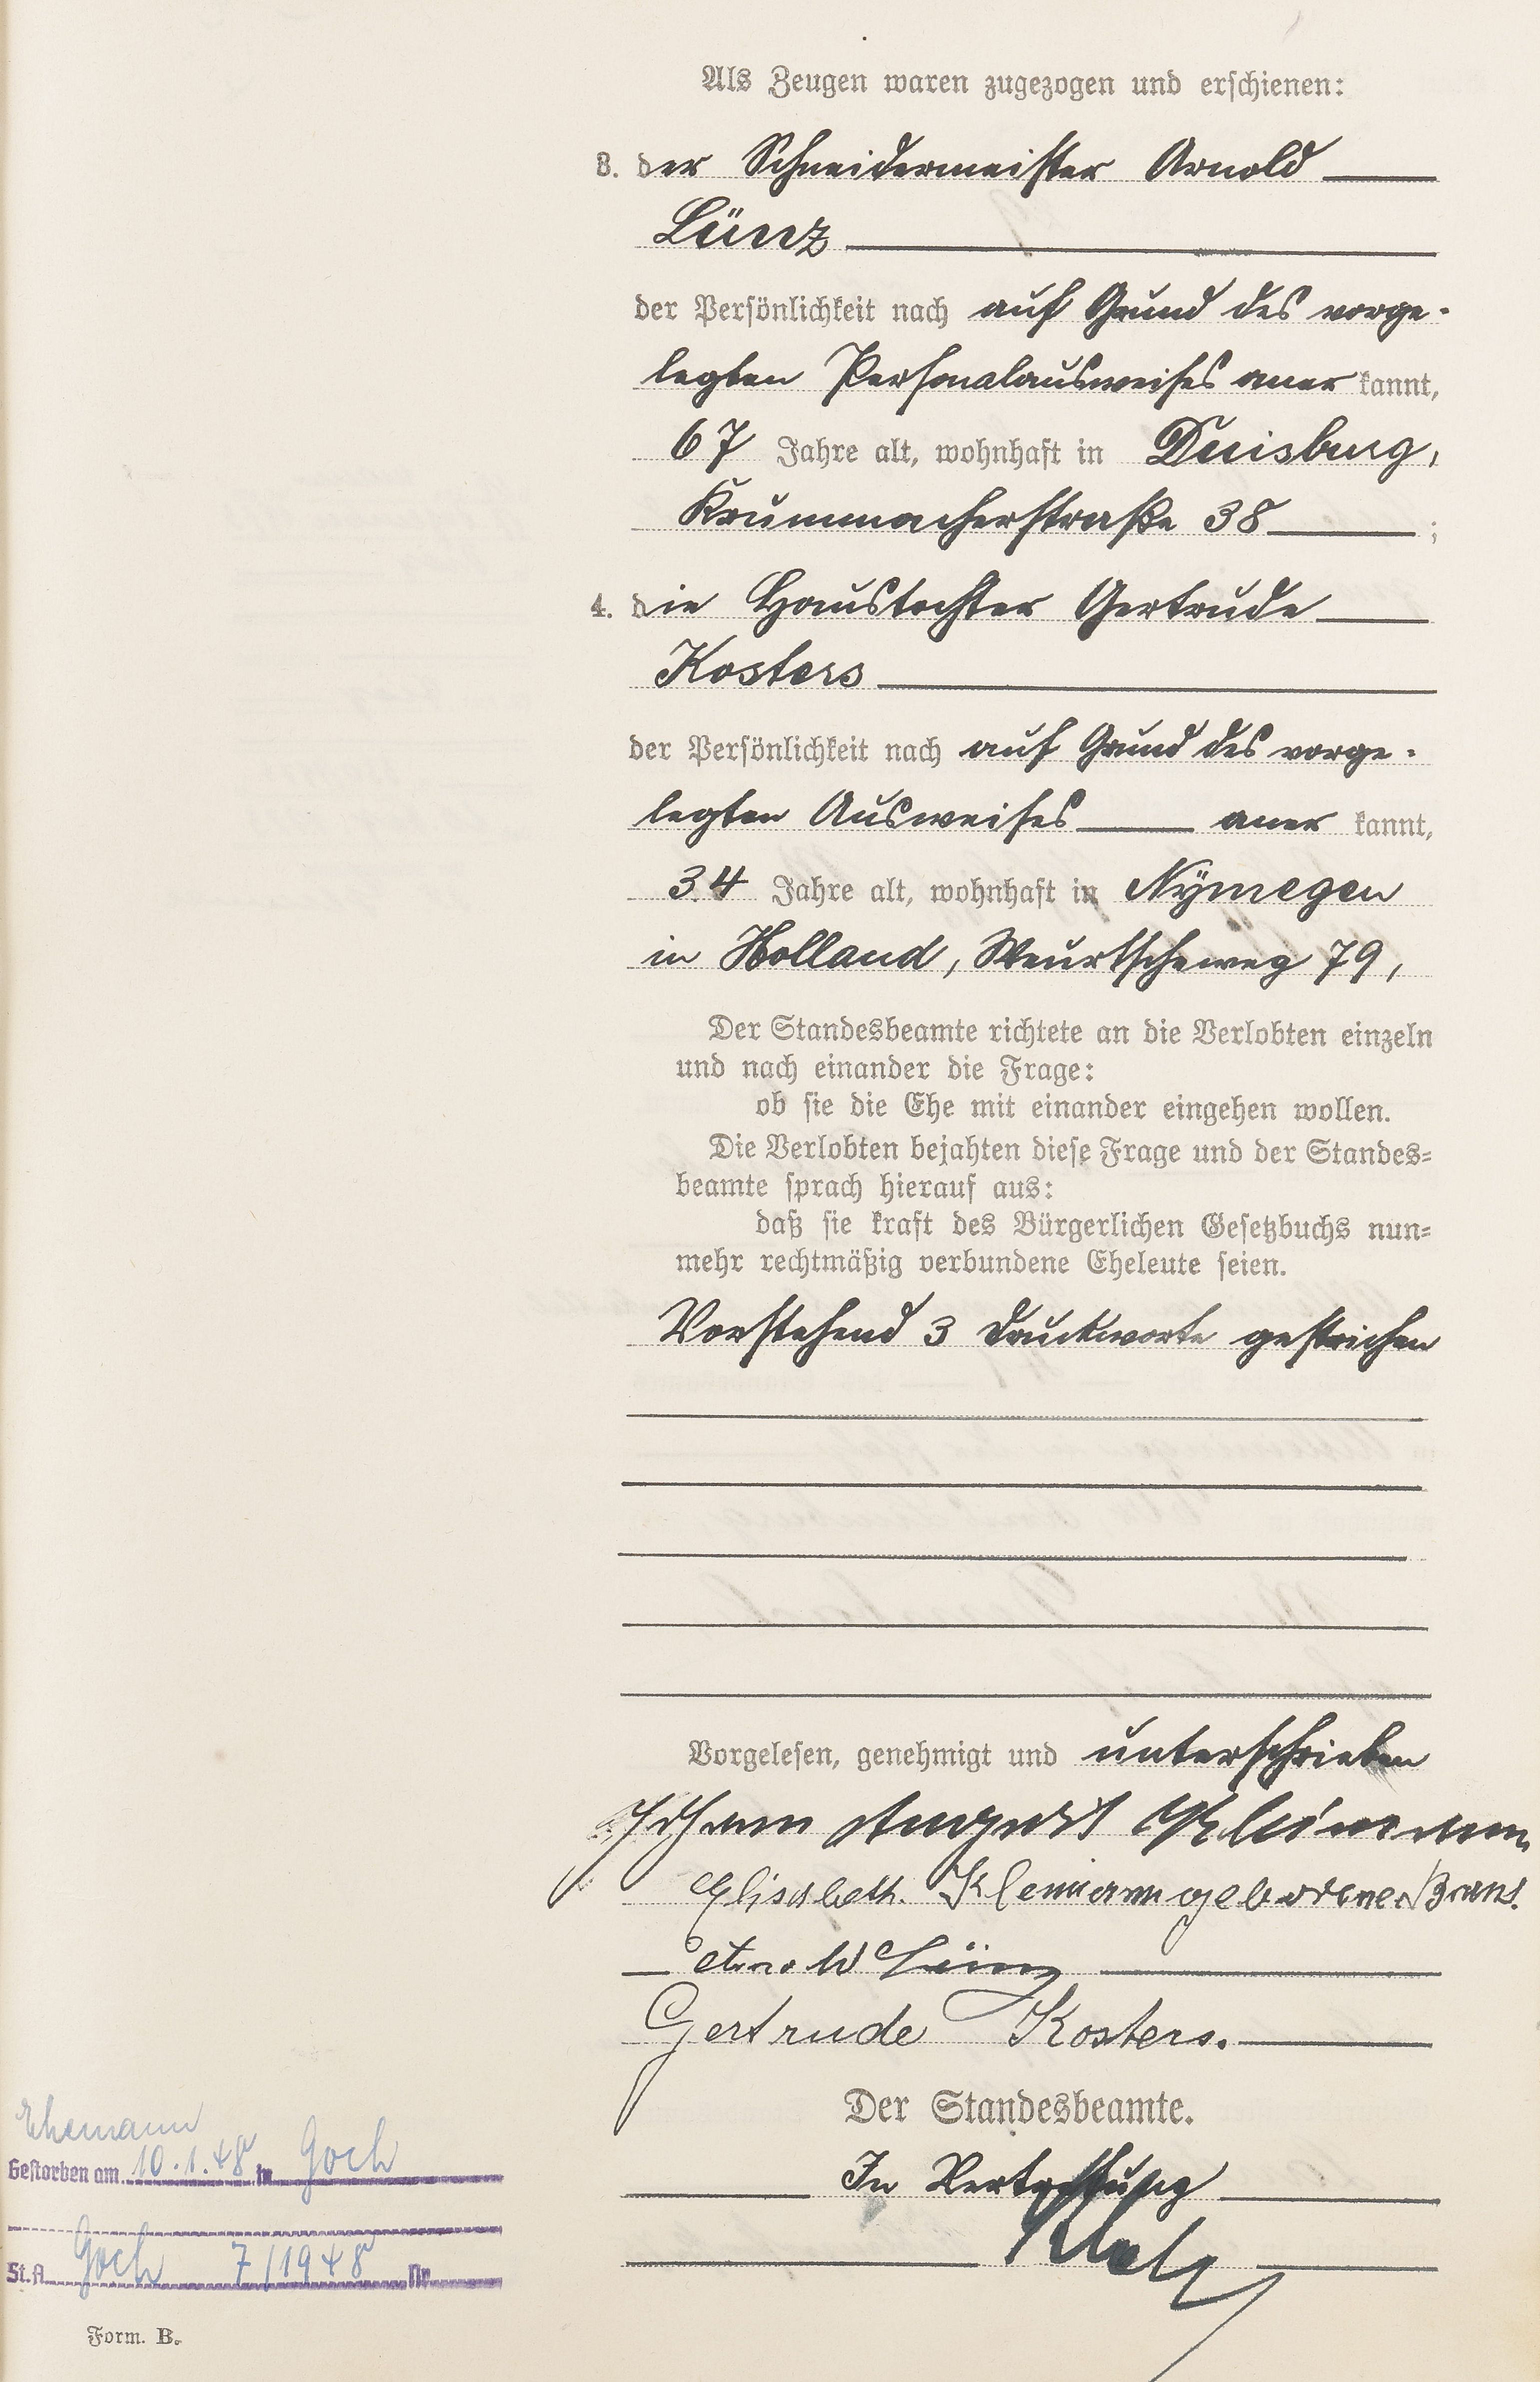 Als Zeugen waren zugezogen und erschienen:
3. der Schneidermeister Arnold
Lünz
der Persönlichkeit nach auf Grund des vorge-
legten Personalausweises aner kannt,
67 Jahre alt, wohnhaft in Duisburg,
Krummacherstraße 38 ;
4. die Haustochter Gertrude
Kosters
der Persönlichkeit nach auf Grund des vorge-
legten Ausweises aner kannt,
34 Jahre alt, wohnhaft in Nÿmegen
in Holland, Weurtscheweg 79,
Der Standesbeamte richtete an die Verlobten einzeln
und nach einander die Frage:
ob sie die Ehe mit einander eingehen wollen.
Die Verlobten bejahten diese Frage und der Standes-
beamte sprach hierauf aus:
daß sie kraft des Bürgerlichen Gesetzbuchs nun-
mehr rechtmäßig verbundene Eheleute seien.
Vorstehend 3 Druckworte gestrichen
Vorgelesen, genehmigt und unterschrieben
Johann August
Elisabeth Klemann geborene
Arnold Lünz
Gertrude Kosters.
Der Standesbeamte.
In Vertretung
Ehemann
Gestorben am 10.1.48 in Goch
St.A. Goch 7/1948 Nr.
Form. B.